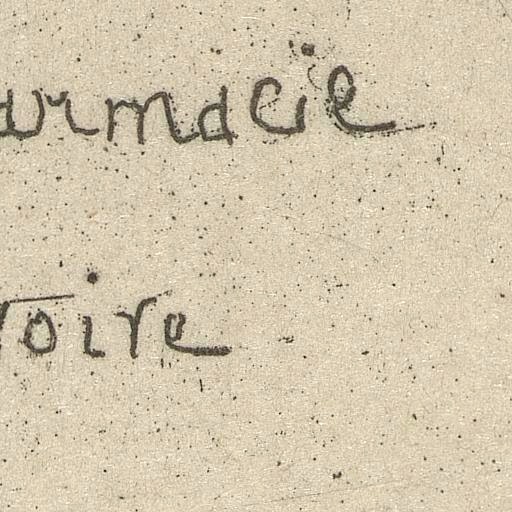 armacie
toire